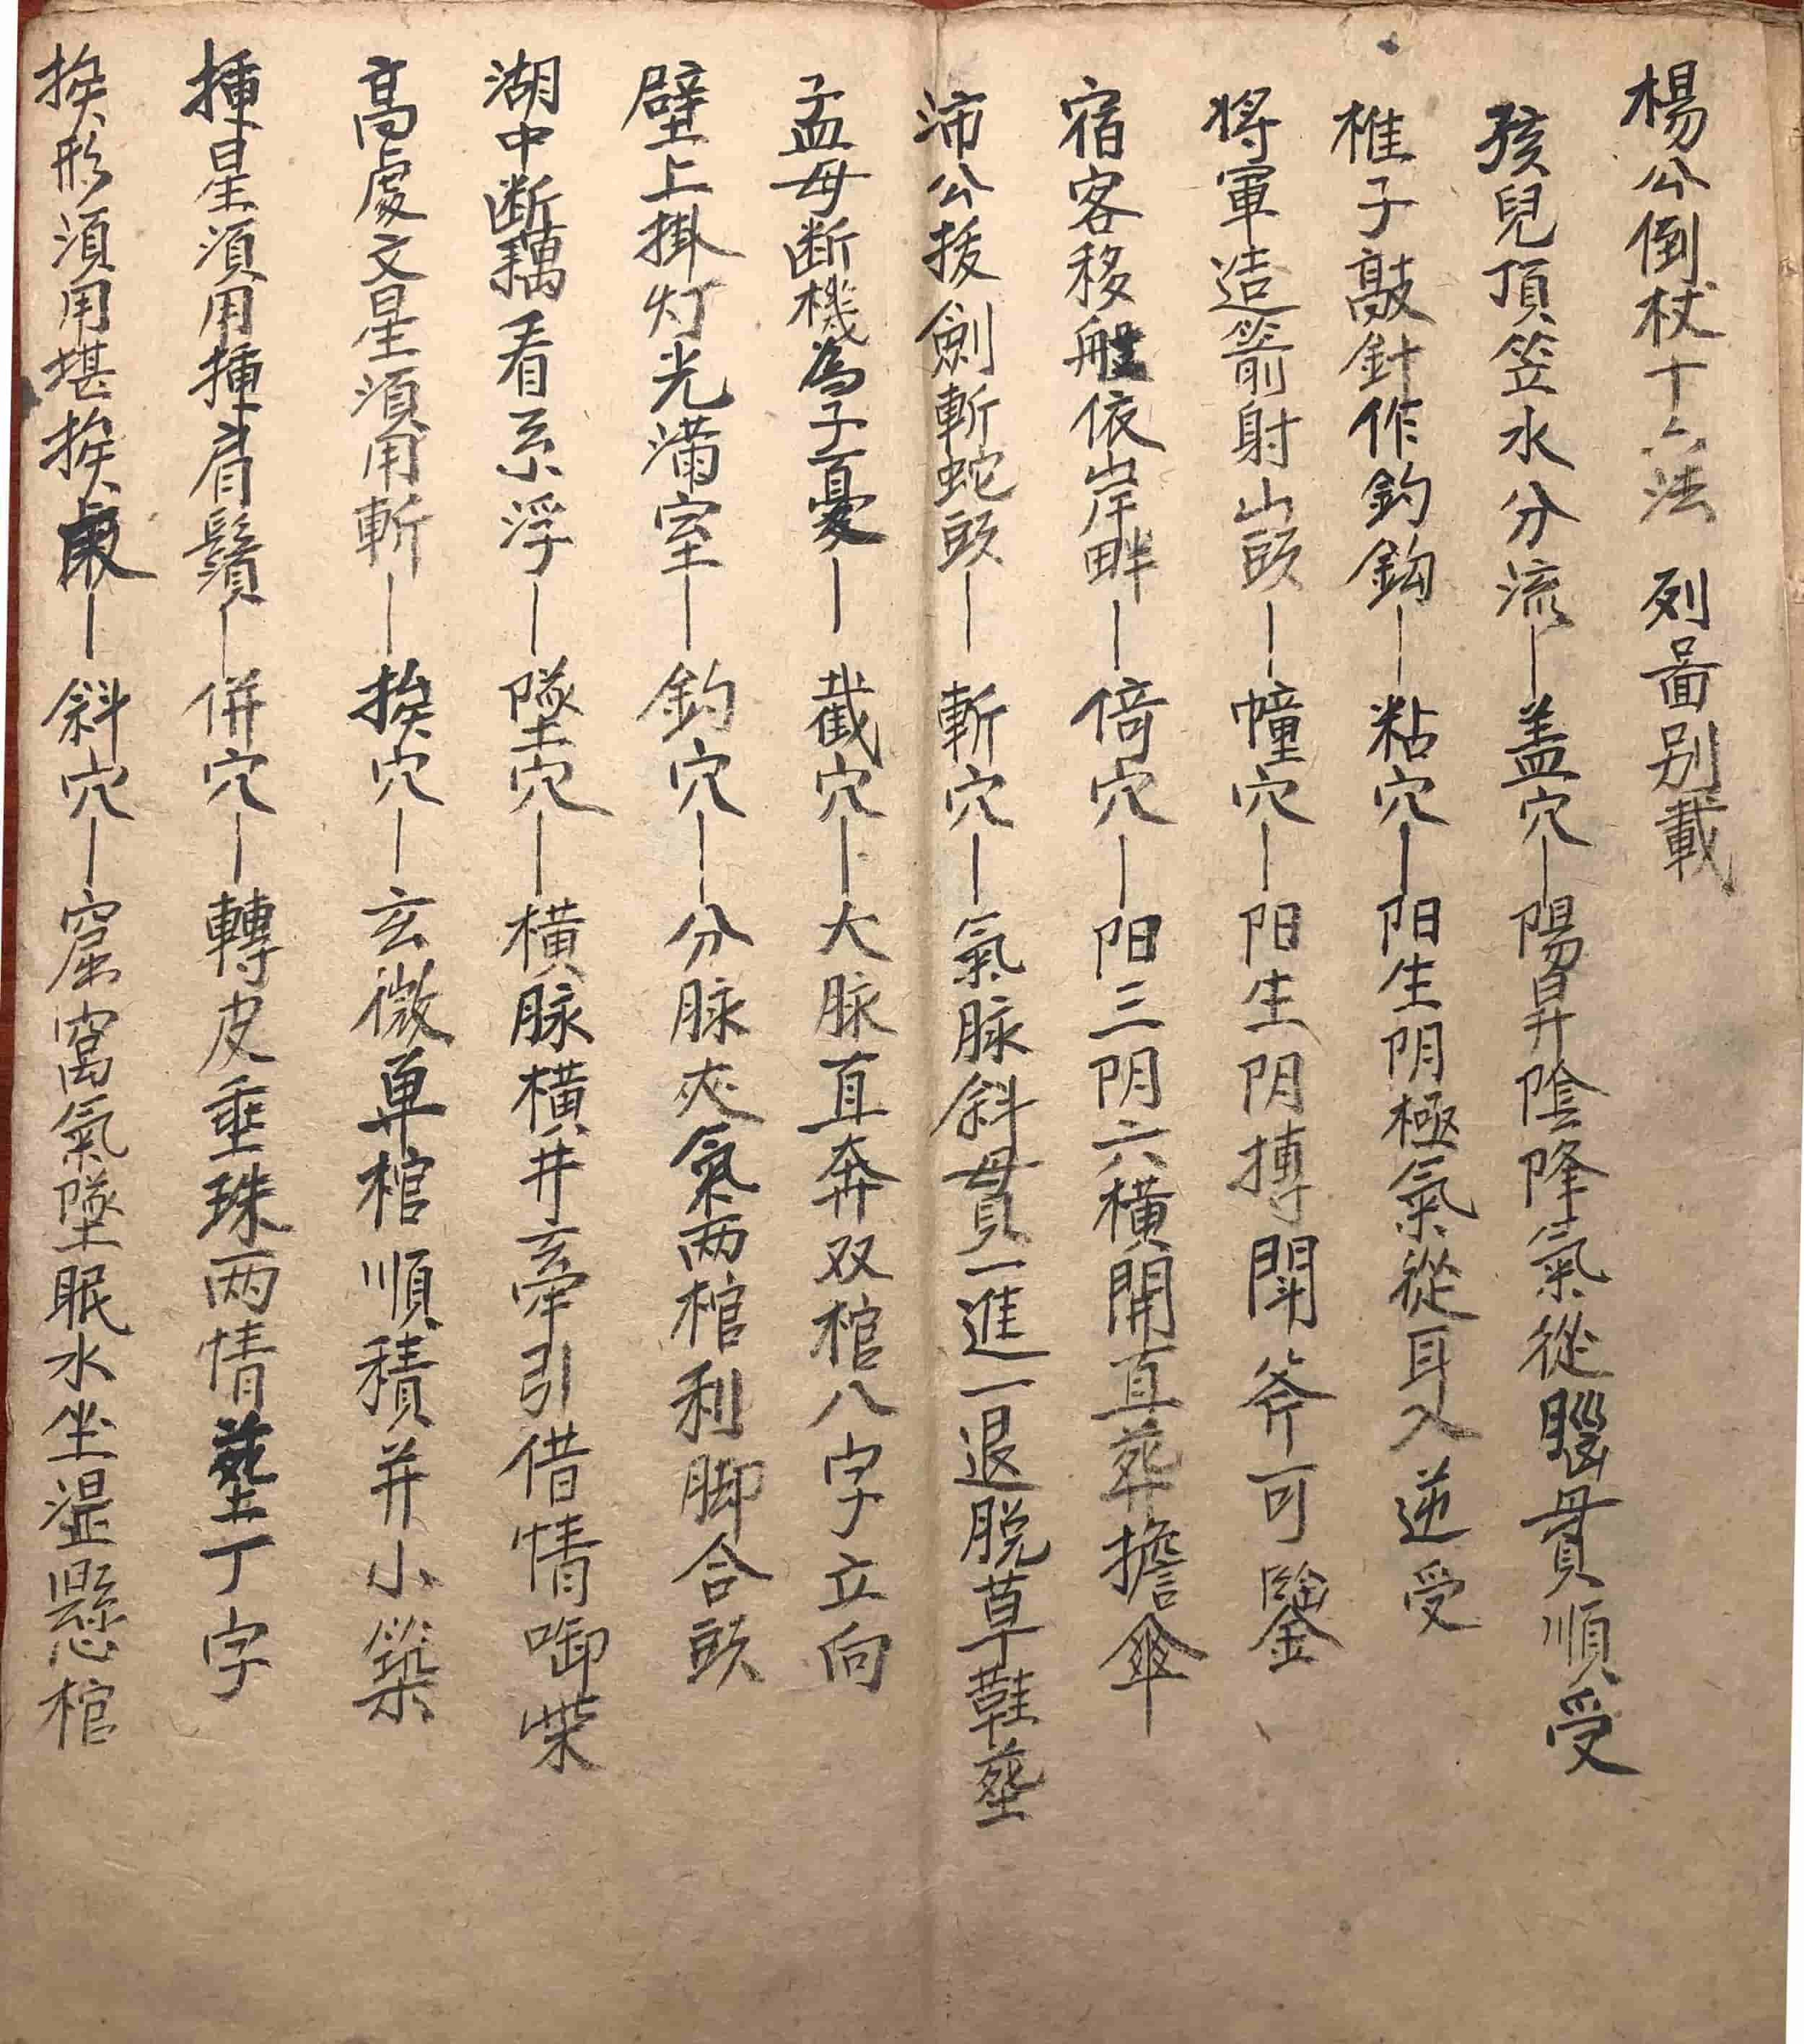 楊公倒杖十六法 列畐别載
孩兒頂笠水分流—盖穴—陽昇陰降氣從腦貫順受
椎子敲針作釣鈎—粘穴—阳生阴極氣從耳入逆受
将軍造箭射山頭—幢穴—阳生阴摶閗斧可鑿
宿客移船依岸畔—倚穴—阳三阴六橫開直葬擔傘
沛公拔劍斬蛇頭—斬穴—氣脉斜貫一進一退脱草鞋塟
孟母断機為子憂—截穴—大脉直奔双棺八字立向
壁上掛灯光满室—釣穴—分脉夾氣两棺利脚合頭
湖中断藕看系浮—墜穴—橫脉橫井牽引借情啣柴
高處文星須用斬—挨穴—玄微单棺順積并小築
揷星須用揷眉鬚—併穴—轉皮垂珠两情塟丁字
挨形須用堪挨—斜穴—窟窩氣墜眠水坐湿懸棺